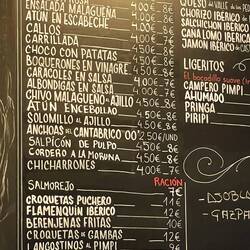 ENSALADA MALAGUEÑA 4.00€ 8€
ATÚN EN ESCABECHE 4.00€ 8€
CALLOS 4.00€ 8€
CARRILLADA 4.50€ 8€
CHOCO CON PATATAS 4.50€ 8€
BOQUERONES EN VINAGRE 4.50€ 8€
CARACOLES EN SALSA 4.00€ 8€
ALBONDIGAS EN SALSA 4.00€ 8€
CHIVO MALAGUEÑO AL AJILLO
ATÚN ENCEBOLLAO 4.50€ 8€
SOLOMILLO AL AJILLO 4.50€ 8€
ANCHOAS DEL CANTABRICO '00' 2.50€/UND
SALPICÓN DE PULPO 4.50€ 8€
CORDERO A LA MORUNA 4.50€ 8€
CHICHARRONES 4.00€ 8€
RACIÓN
SALMOREJO 7€
CROQUETAS PUCHERO 11€
FLAMENQUÍN IBÉRICO 12€
BERENJENAS FRITAS 10€
CROQUETAS DE GAMBAS 12€
LANGOSTINOS AL PIMPI
QUESO
CHORIZO IBÉRICO
SALCHICHON IBER
CAÑA LOMO IBER
JAMON IBÉRICO DE
LIGERITOS
El bocadillo suave
CAMPERO PIMPI
AHUMADO
PRINGA
PIRIPI